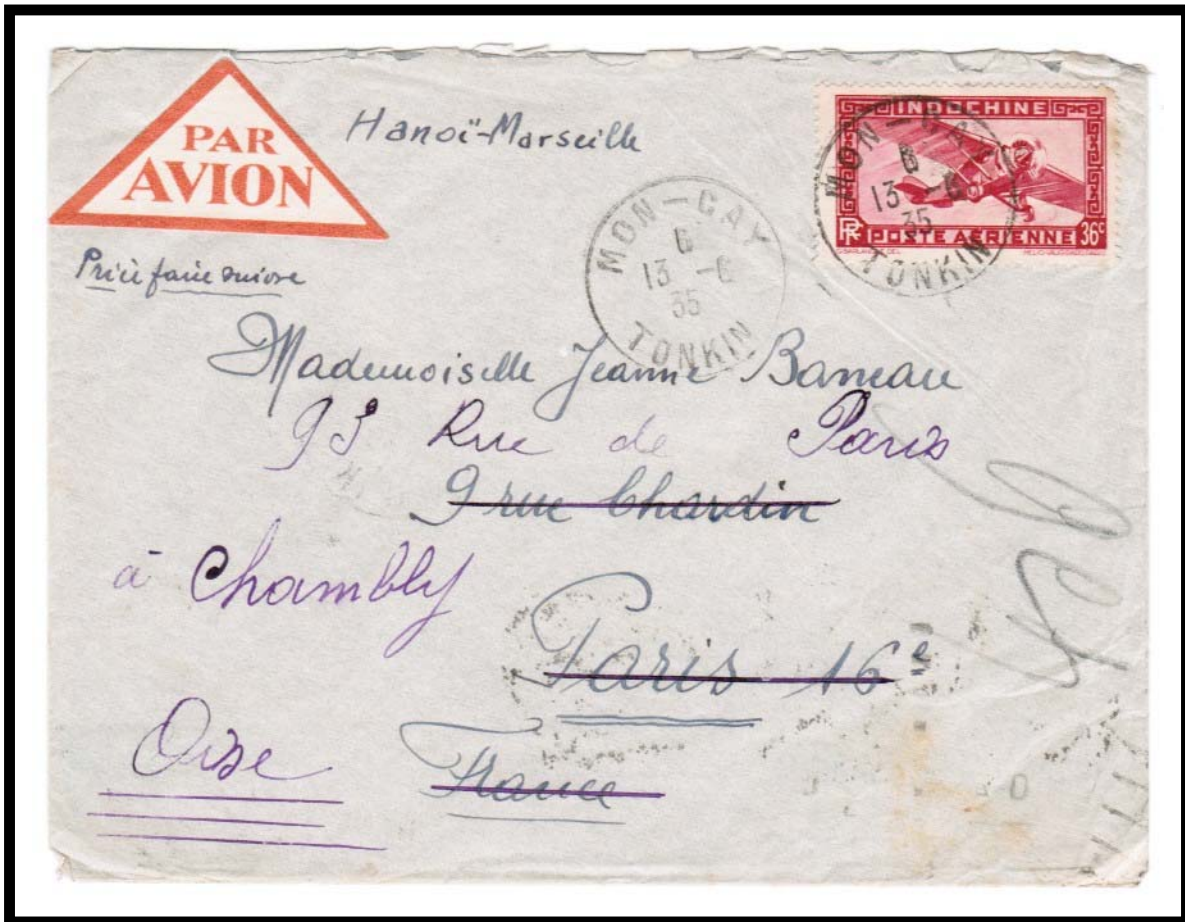 PAR
AVION
Hanoï-Marseille
INDOCHINE
RF POSTE AÉRIENNE 36c
MON-CAY
6
13 -6
35
TONKIN
MON-CAY
6
13 -6
35
TONKIN
Prière faire suivre
Mademoiselle Jeanne
95 Rue de Paris
9 rue Chardin
à Chambly
Paris 16e
Oise
France